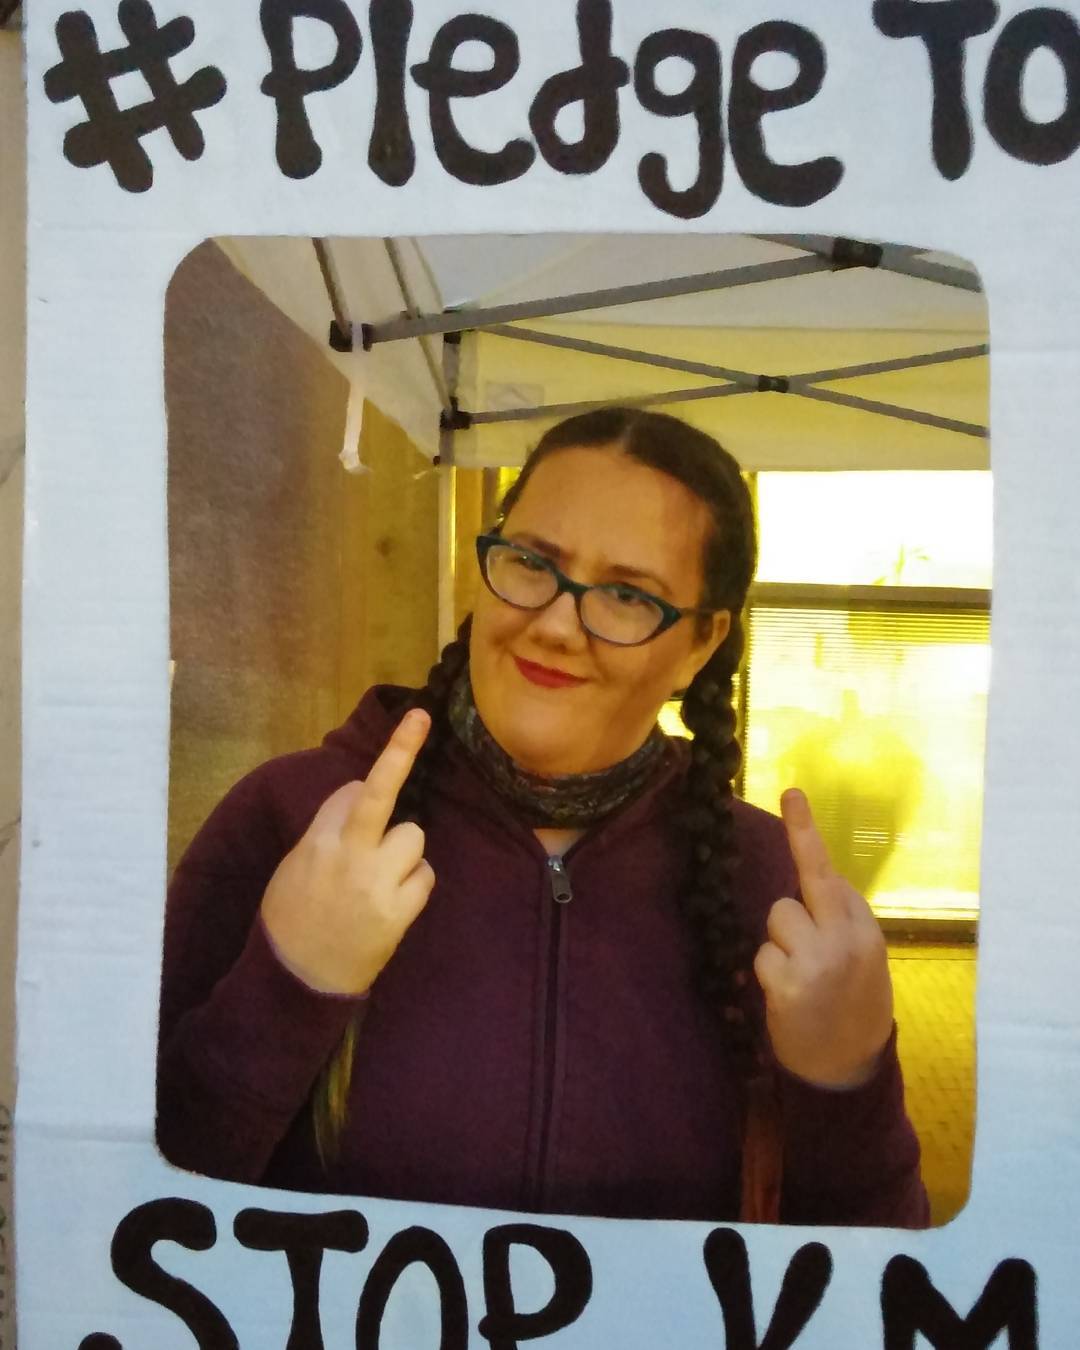 #Pledge To
STOP KM